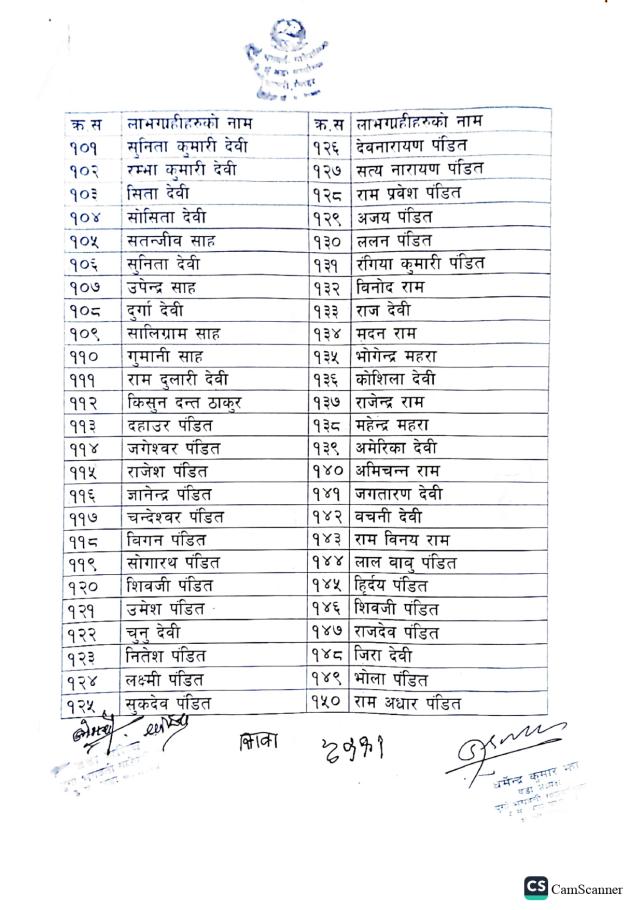 क्र.स लाभग्राहीहरुको नाम क्र.स लाभग्राहीहरुको नाम
१०१ सुनिता कुमारी देवी १२६ देवनारायण पंडित
१०२ रम्भा कुमारी देवी १२७ सत्य नारायण पंडित
१०३ सिता देवी १२८ राम प्रवेश पंडित
१०४ सोसिता देवी १२९ अजय पंडित
१०५ सतन्जीव साह १३० ललन पंडित
१०६ सुनिता देवी १३१ रंगिया कुमारी पंडित
१०७ उपेन्द्र साह १३२ विनोद राम
१०८ दुर्गा देवी १३३ राज देवी
१०९ सालिग्राम साह १३४ मदन राम
११० गुमानी साह १३५ भोगेन्द्र महरा
१११ राम दुलारी देवी १३६ कोशिला देवी
११२ किसुन दन्त ठाकुर १३७ राजेन्द्र राम
११३ दहाउर पंडित १३८ महेन्द्र महरा
११४ जगेश्वर पंडित १३९ अमेरिका देवी
११५ राजेश पंडित १४० अमिचन्न राम
११६ ज्ञानेन्द्र पंडित १४१ जगतारण देवी
११७ चन्देश्वर पंडित १४२ वचनी देवी
११८ विगन पंडित १४३ राम विनय राम
११९ सोगारथ पंडित १४४ लाल वावु पंडित
१२० शिवजी पंडित १४५ हिर्दय पंडित
१२१ उमेश पंडित १४६ शिवजी पंडित
१२२ चुनु देवी १४७ राजदेव पंडित
१२३ नितेश पंडित १४८ जिरा देवी
१२४ लक्ष्मी पंडित १४९ भोला पंडित
१२५ सुकदेव पंडित १५० राम अधार पंडित
धर्मेन्द्र कुमार
CS CamScanner